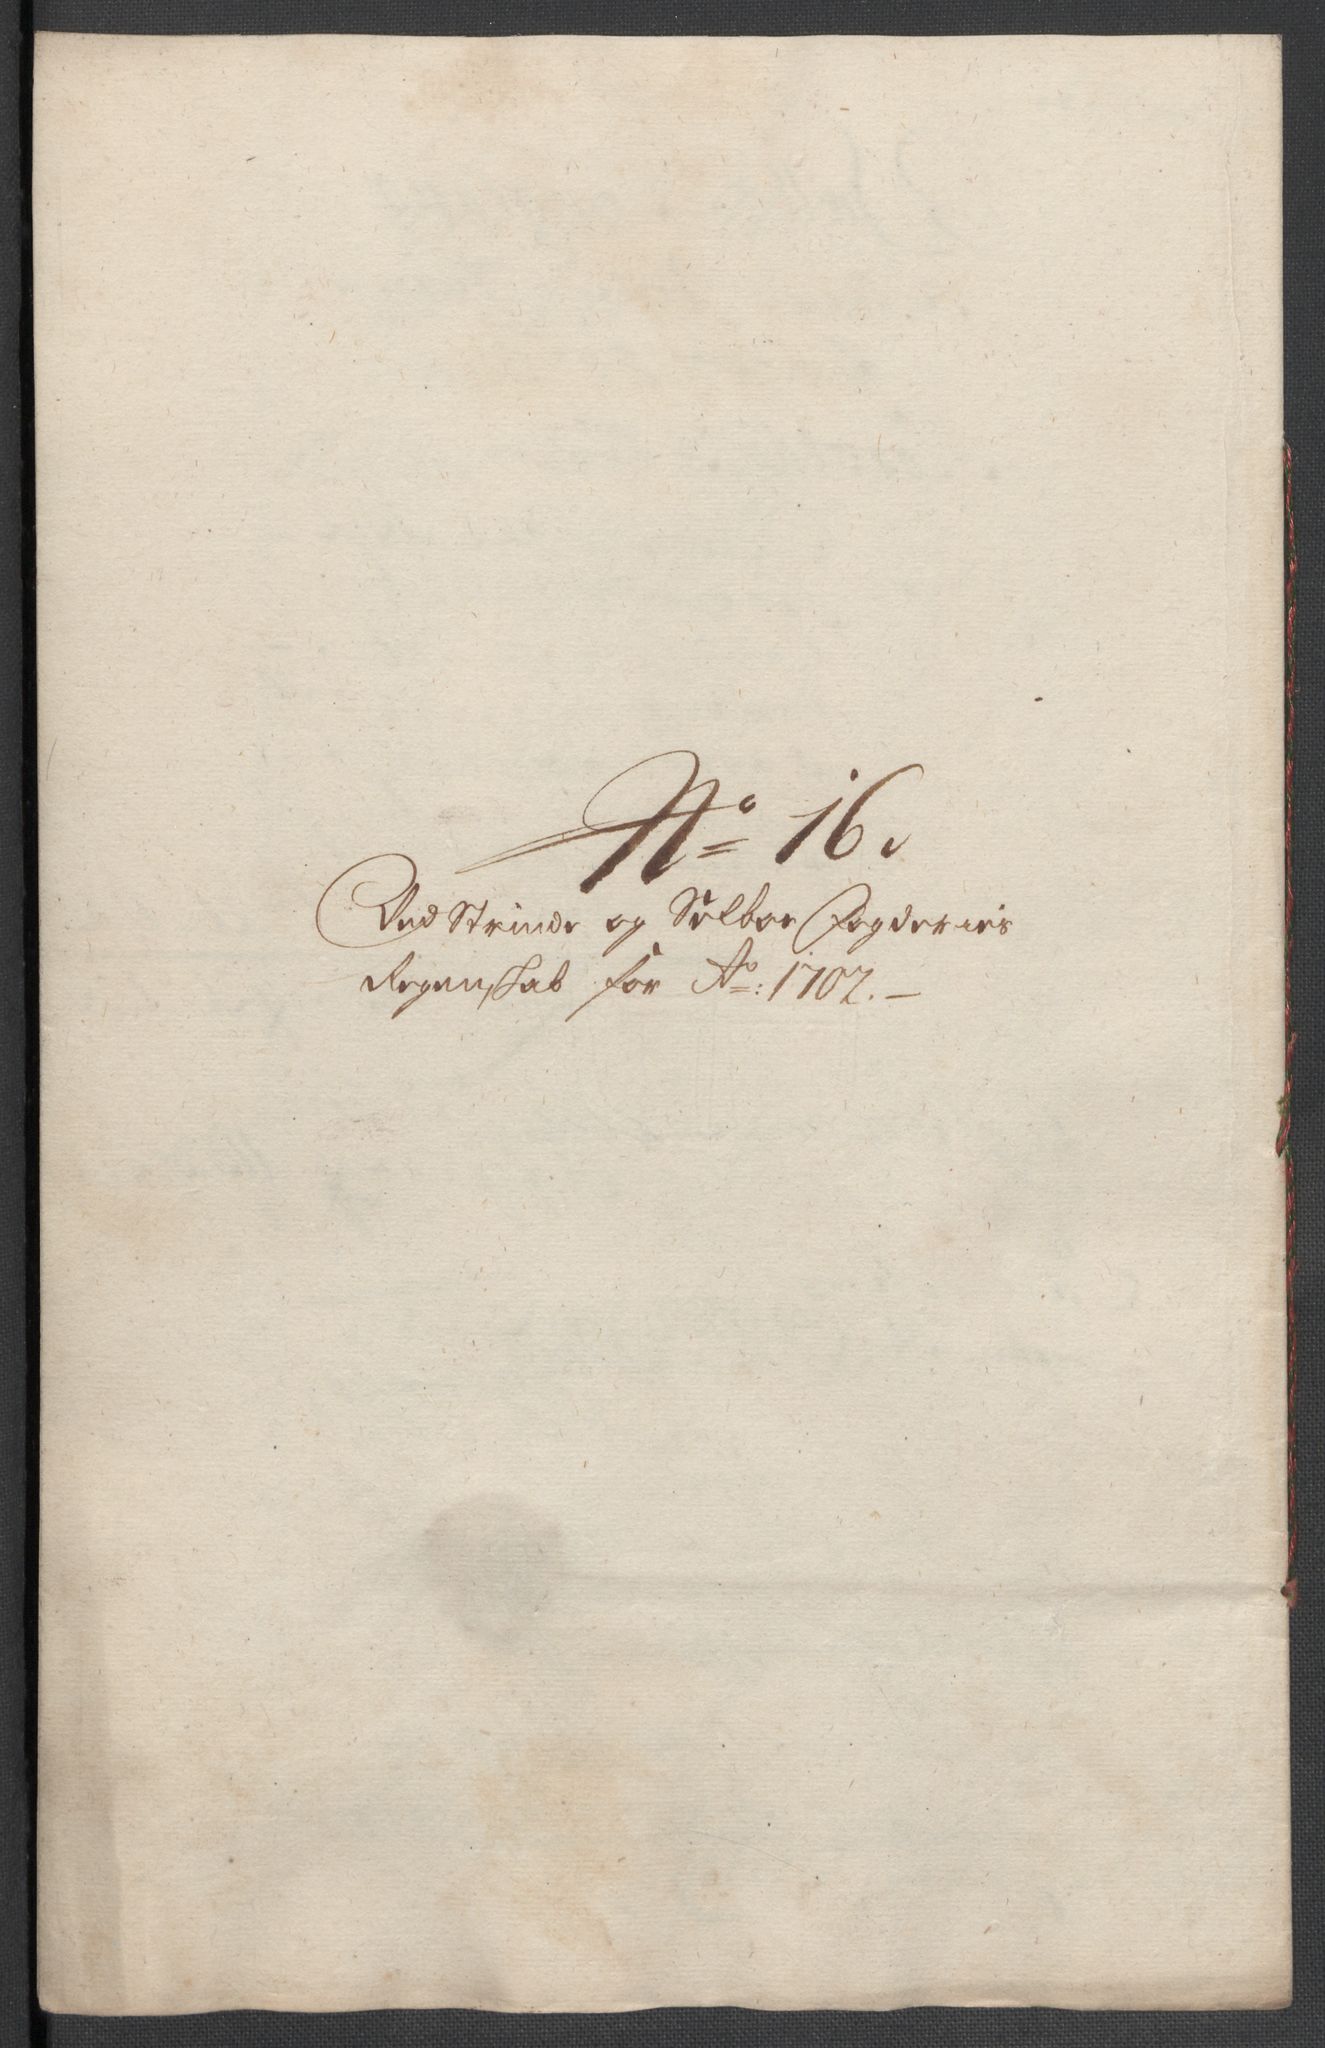 No 16.
Ved Strinde og Selboe Fogderies
Regenskab for Ao: 1702. –